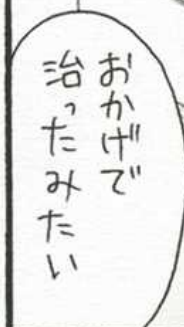 おかげで
治ったみたい